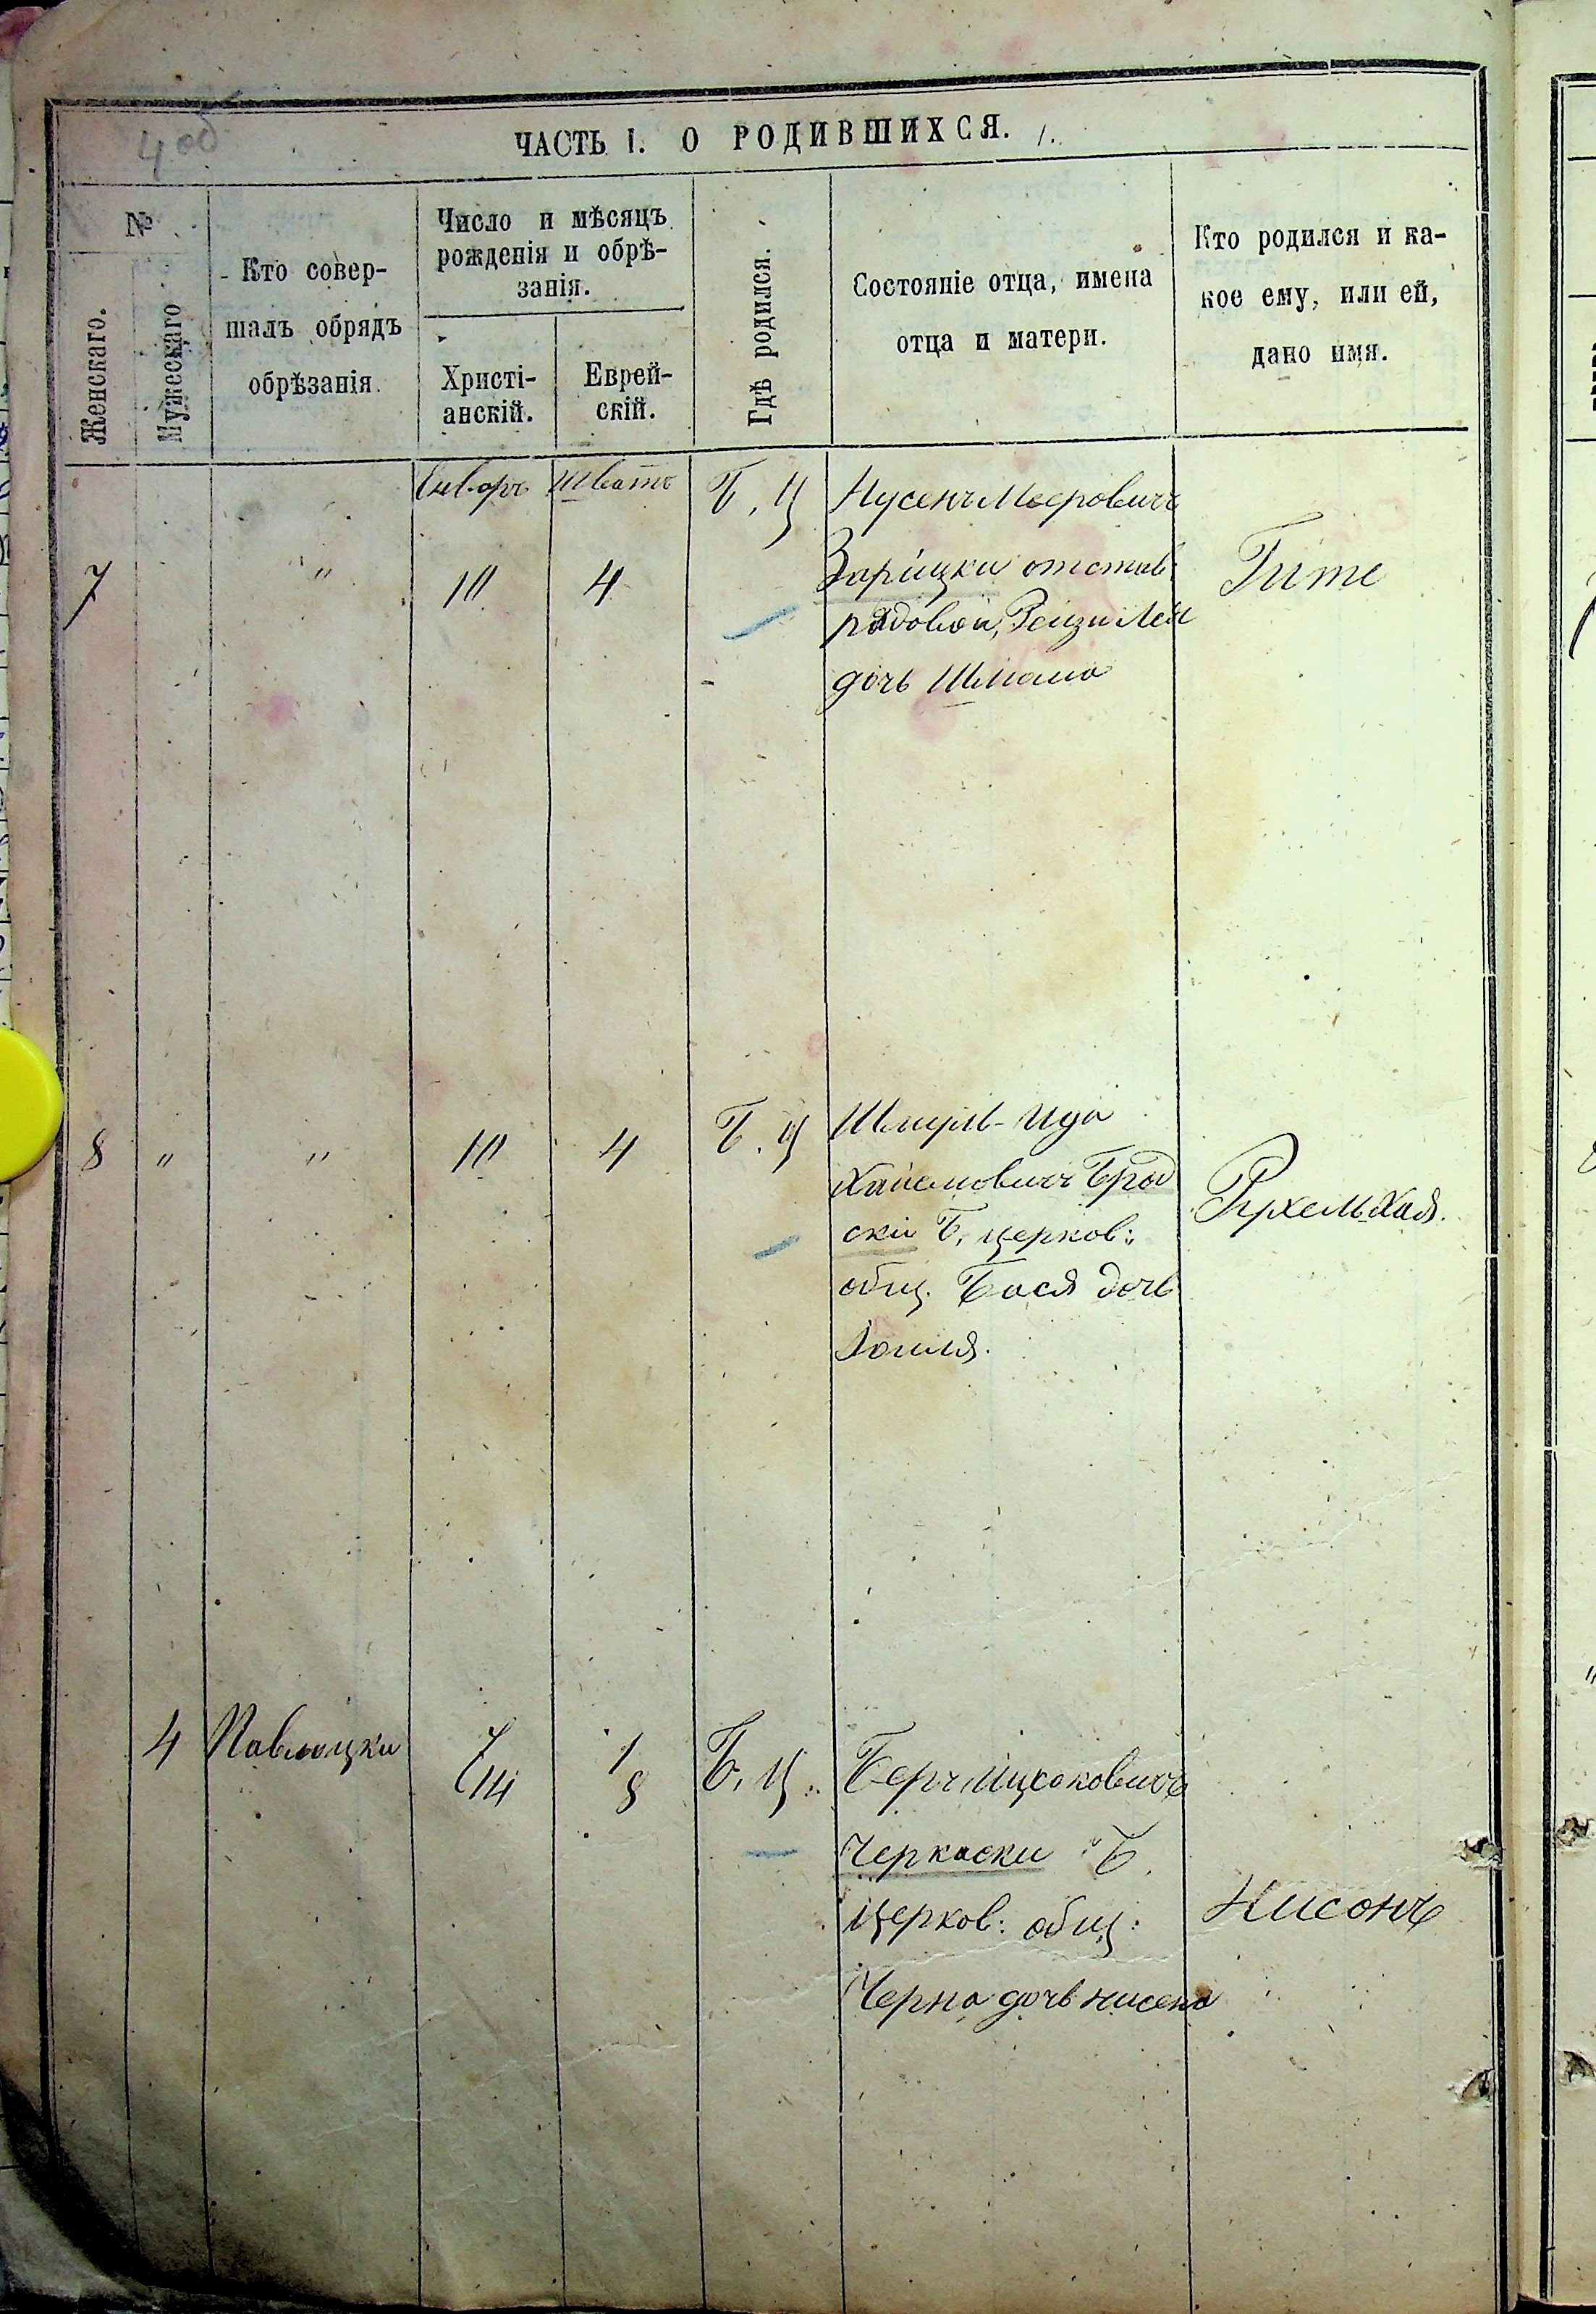 4 об
ЧАСТЬ I. О РОДИВШИХСЯ. 1.
№
Женскаго.
Мужескаго
Кто совер-
шалъ обрядъ
обрѣзанія.
Число и мѣсяцъ
рожденія и обрѣ-
занія.
Христі-
анскій.
Еврей-
скій.
Гдѣ родился.
Состояніе отца, имена
отца и матери.
Кто родился и ка-
кое ему, или ей,
дано имя.
Январь Шватъ Б. Ц Нусенъ Меровичъ
7 " 10 4 Зарицки отстав:
рядовой, Рейзи Лея
дочь Шлиома
Гите
8 " " 10 4 Б. Ц Шмуль-Ида
Хаимовичъ Брод
ски Б. церков:
общ. Бася дочь
Иоиля.
Рухель Хая.
4 Паволоцки 7/14 1/8 Б. Ц. Беръ Ицковичъ
Черкаски Б.
церков: общ:
Черна дочь Нисена
Нисонъ